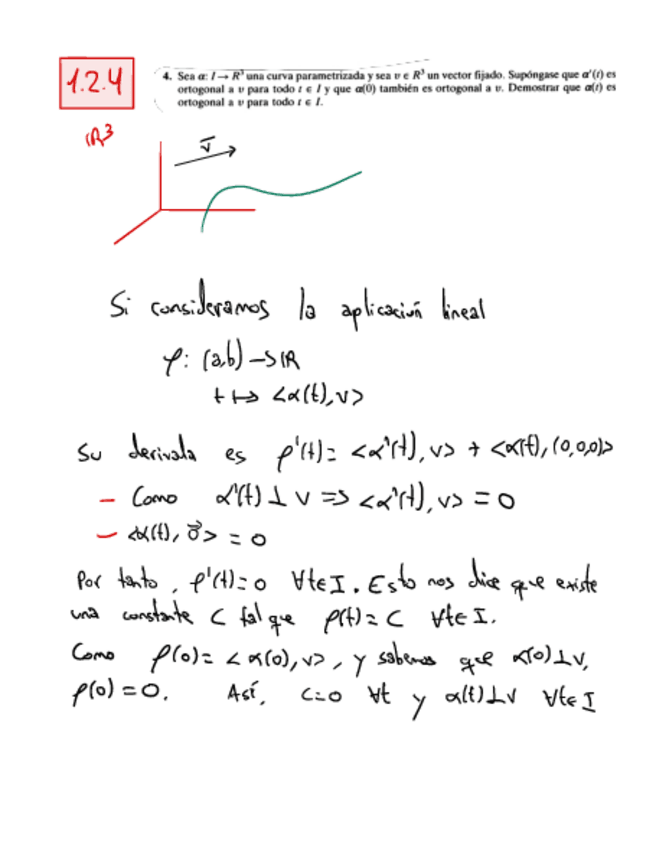 1.2.4
4. Sea α: I → R³ una curva parametrizada y sea v ∈ R³ un vector fijado. Supóngase que α'(t) es
ortogonal a v para todo t ∈ I y que α(0) también es ortogonal a v. Demostrar que α(t) es
ortogonal a v para todo t ∈ I.
ℝ³
v̄
Si consideramos la aplicación lineal
φ: (a,b) → ℝ
t ↦ <α(t),v>
Su derivada es φ'(t) = <α'(t),v> + <α(t),(0,0,0)>
- Como α'(t) ⊥ v => <α'(t),v> = 0
- <α(t), 0⃗> = 0
Por tanto, φ'(t)=0 ∀t∈I. Esto nos dice que existe
una constante C tal que φ(t)=C ∀t∈I.
Como φ(0)=<α(0),v>, y sabemos que α(0)⊥v,
φ(0)=0. Así, C=0 ∀t y α(t)⊥v ∀t∈I